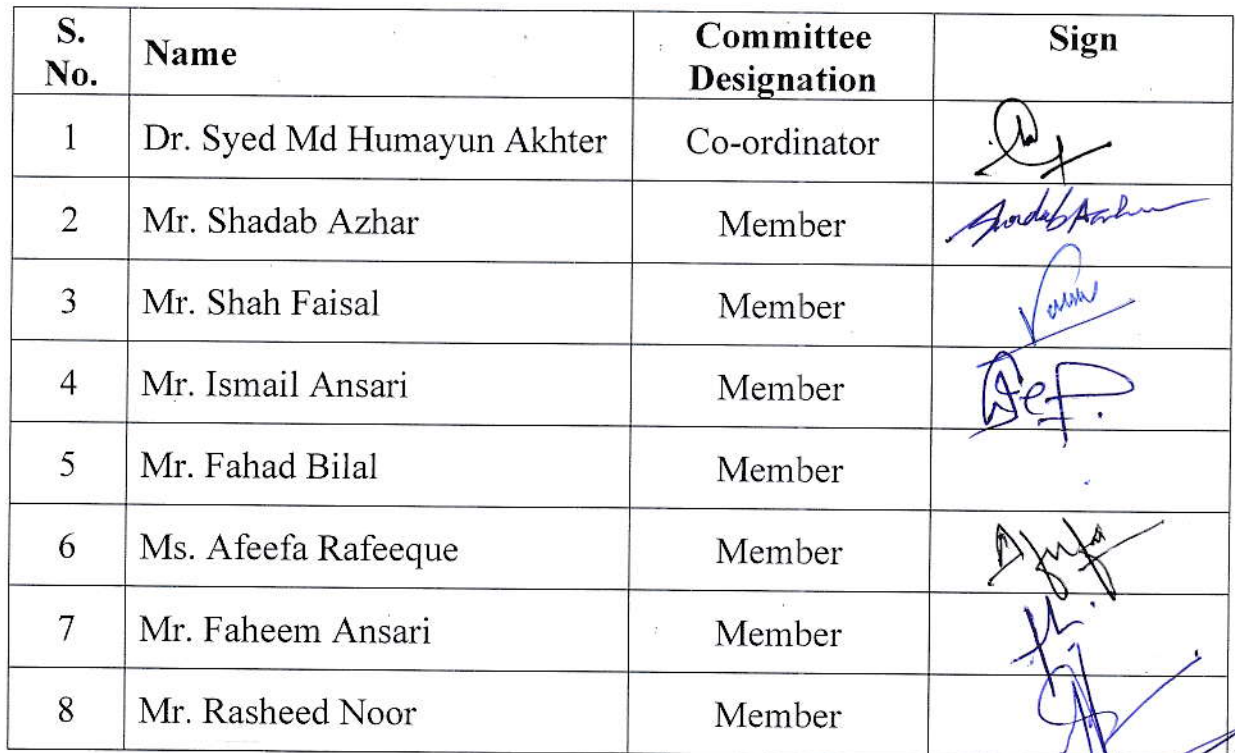 S. No. Name Committee Designation Sign
1 Dr. Syed Md Humayun Akhter Co-ordinator
2 Mr. Shadab Azhar Member Shadab Azhar
3 Mr. Shah Faisal Member
4 Mr. Ismail Ansari Member
5 Mr. Fahad Bilal Member
6 Ms. Afeefa Rafeeque Member
7 Mr. Faheem Ansari Member
8 Mr. Rasheed Noor Member